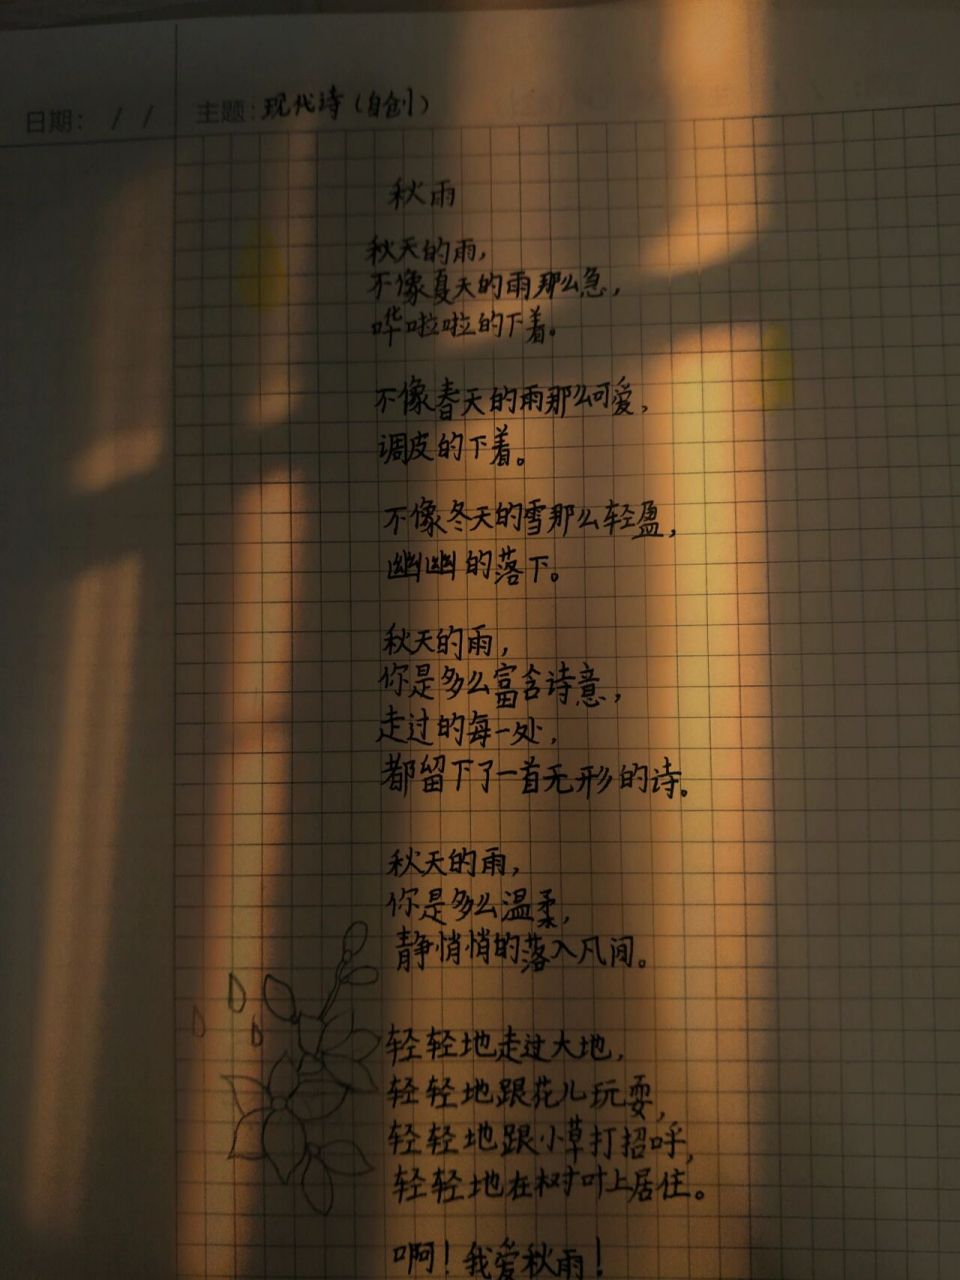 日期： / /
主题：现代诗（自创）
秋雨
秋天的雨，
不像夏天的雨那么急，
哗啦啦的下着。
不像春天的雨那么可爱，
调皮的下着。
不像冬天的雪那么轻盈，
幽幽的落下。
秋天的雨，
你是多么富含诗意，
走过的每一处，
都留下了一首无形的诗。
秋天的雨，
你是多么温柔，
静悄悄的落入凡间。
轻轻地走过大地，
轻轻地跟花儿玩耍，
轻轻地跟小草打招呼，
轻轻地在树叶上居住。
啊！我爱秋雨！